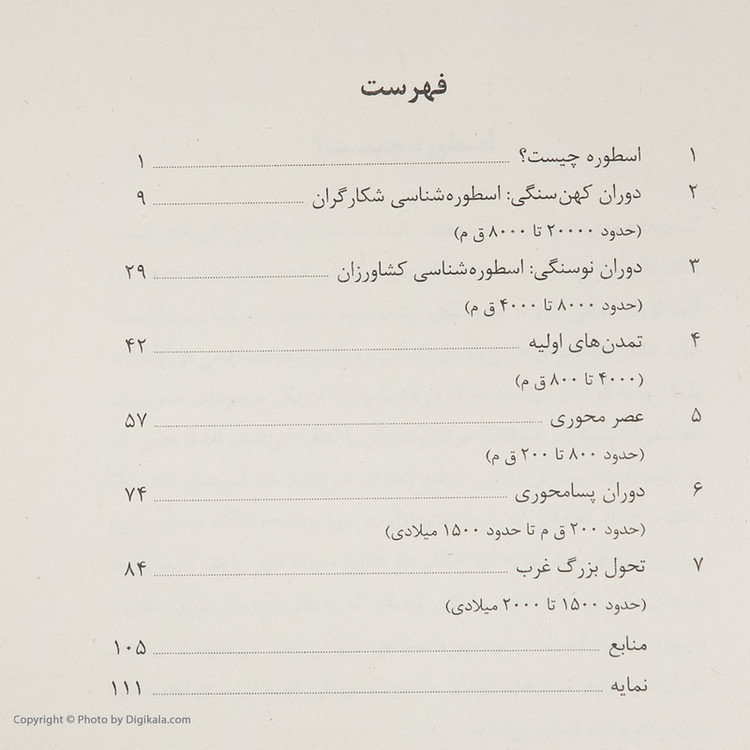 فهرست
۱ اسطوره چیست؟ ........ ۱
۲ دوران کهن‌سنگی: اسطوره‌شناسی شکارگران ........ ۹
(حدود ۲۰۰۰۰ تا ۸۰۰۰ ق م)
۳ دوران نوسنگی: اسطوره‌شناسی کشاورزان ........ ۲۹
(حدود ۸۰۰۰ تا ۴۰۰۰ ق م)
۴ تمدن‌های اولیه ........ ۴۲
(۴۰۰۰ تا ۸۰۰ ق م)
۵ عصر محوری ........ ۵۷
(حدود ۸۰۰ تا ۲۰۰ ق م)
۶ دوران پسامحوری ........ ۷۴
(حدود ۲۰۰ ق م تا حدود ۱۵۰۰ میلادی)
۷ تحول بزرگ غرب ........ ۸۴
(حدود ۱۵۰۰ تا ۲۰۰۰ میلادی)
منابع ........ ۱۰۵
نمایه ........ ۱۱۱
Copyright © Photo by Digikala.com